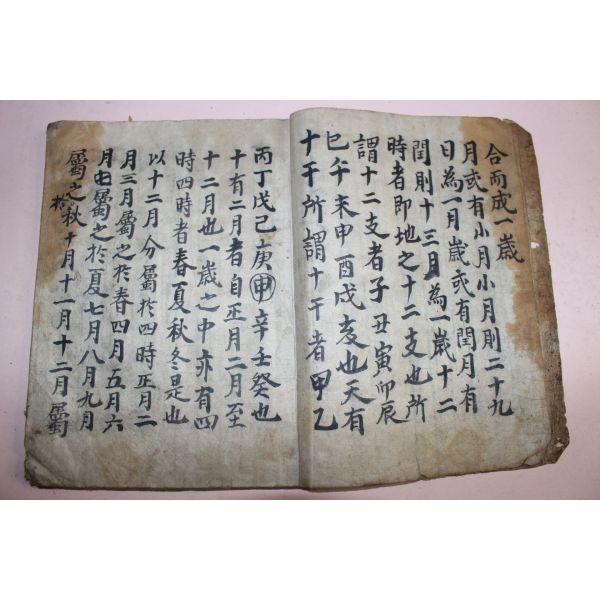 合而成一歲
月或有小月小月則二十九
日為一月歲或有閏月有
閏則十三月為一歲十二
時者即地之十二支也所
謂十二支者子丑寅卯辰
巳午未申酉戌亥也天有
十干所謂十干者甲乙
丙丁戊己庚申辛壬癸也
十有二月者自正月二月至
十二月也一歲之中亦有四
時四時者春夏秋冬是也
以十二月分屬於四時正月二
月三月屬之於春四月五月六
月屬之於夏七月八月九月
屬之於秋十月十一月十二月屬